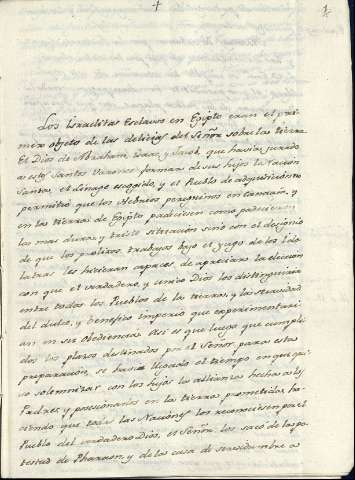 1
Los Israelitas Esclavos en Egipto eran el pri-
mero objeto de las delicias del Señor sobre la tierra
El Dios de Abraham, Isaac, y Jacob, que havia jurado
a estos Santos Varones formar de sus hijos la Nacion
Santa, el Linage escogido, y el Pueblo de adquisicion
permitió que los Hebreos peregrinos en Canaan, y
en las tierras de Egipto padeciesen como padecieron
la mas dura, y triste situacion sino con el designio
de que los prolixos trabajos bajo el yugo de los Ido-
latras les hicieran capaces de apreciar la eleccion
con que el verdadero, y unico Dios los distinguiria
entre todos los Pueblos de la tierra, y la suavidad
del dulce, y benefico imperio que experimentari-
an en su obediencia. Asi es que luego que cumpli-
dos los plazos destinados por el Señor para esta
preparacion, se havia llegado el tiempo en que qui-
so solemnizar con los hijos la alianza hecha a los
Padres, y posesionarlos en la tierra prometida, ha-
ciendo que todas las Naciones los reconociesen por el
Pueblo del verdadero Dios, el Señor los sacó de la po-
testad de Pharaon, y de la casa de servidumbre a